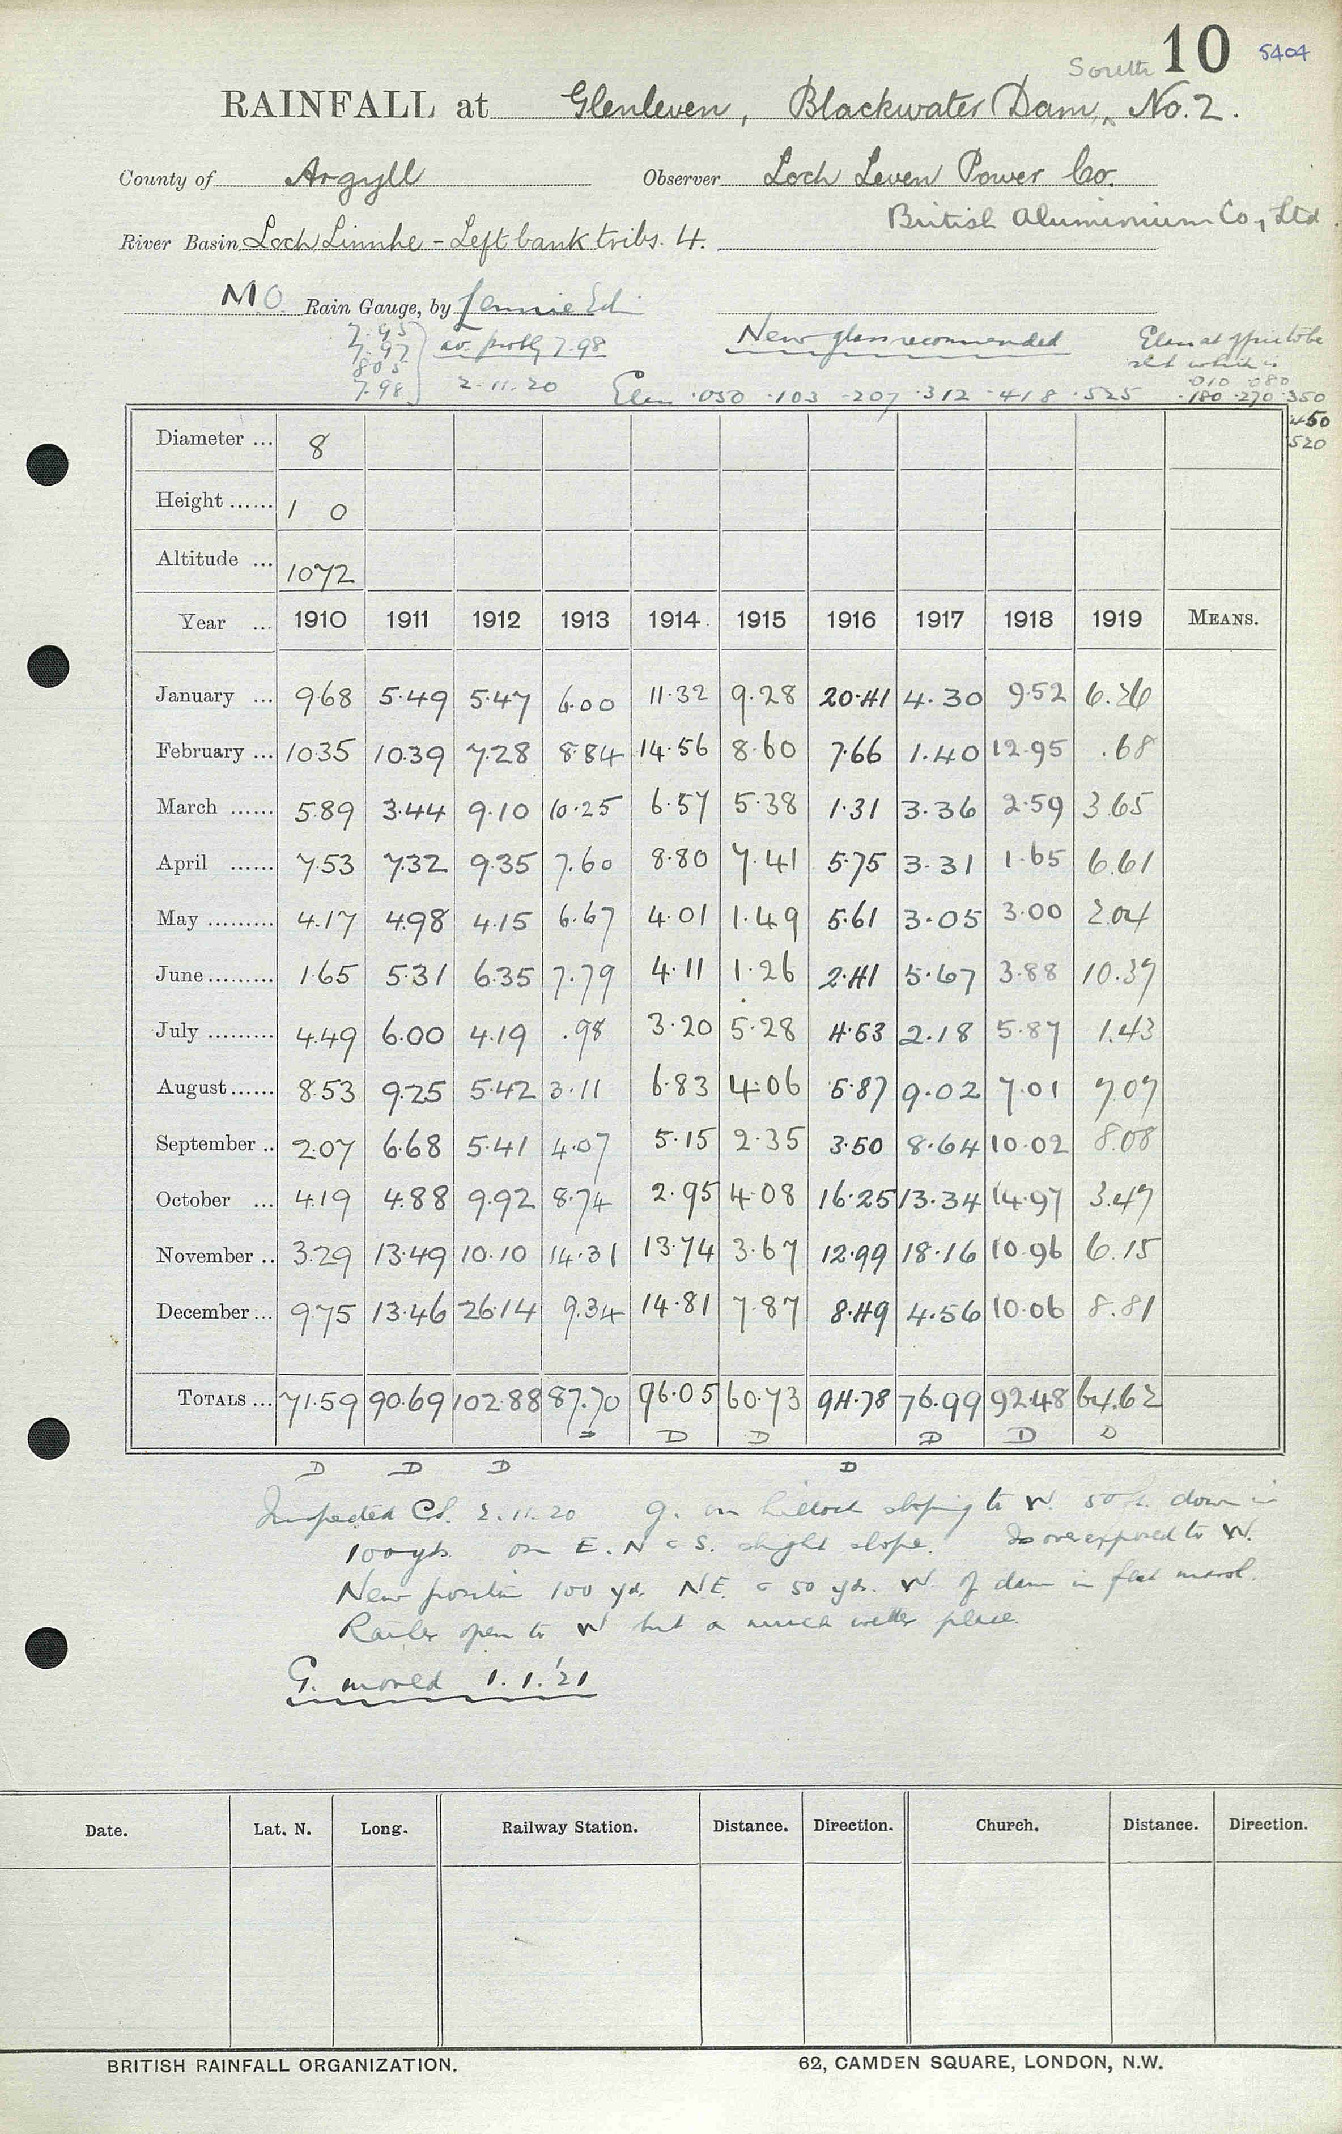 South 10 5404
RAINFALL at Glenleven, Blackwater Dam, No. 2.
County of Argyll Observer Loch Leven Power Co.
British Aluminium Co, Ltd
River Basin Loch Linnhe - Left bank tribs. 4.
MO Rain Gauge, by Lennie Ed
7.95
7.97 av. probly 7.98 New glass recommended
8.05
7.98 2.11.20
.010 .080
.050 .103 .207 .312 .418 .525 .180 .270 .350
.450
520
Diameter ... 8
Height ...... 1 0
Altitude ... 1072
Year ... 1910 1911 1912 1913 1914 1915 1916 1917 1918 1919 MEANS.
January ... 9.68 5.49 5.47 6.00 11.32 9.28 20.41 4.30 9.52 6.26
February ... 10.35 10.39 7.28 8.84 14.56 8.60 7.66 1.40 12.95 .68
March ...... 5.89 3.44 9.10 10.25 6.57 5.38 1.31 3.36 2.59 3.65
April ...... 7.53 7.32 9.35 7.60 8.80 7.41 5.75 3.31 1.65 6.61
May ......... 4.17 4.98 4.15 6.67 4.01 1.49 5.61 3.05 3.00 2.04
June ......... 1.65 5.31 6.35 7.79 4.11 1.26 2.41 5.67 3.88 10.37
July ......... 4.49 6.00 4.19 .98 3.20 5.28 4.53 2.18 5.87 1.43
August ...... 8.53 9.25 5.42 3.11 6.83 4.06 5.87 9.02 7.01 7.07
September .. 2.07 6.68 5.41 4.07 5.15 2.35 3.50 8.64 10.02 8.08
October ... 4.19 4.88 9.92 8.74 2.95 4.08 16.25 13.34 14.97 3.47
November .. 3.29 13.49 10.10 14.31 13.74 3.67 12.99 18.16 10.96 6.15
December ... 9.75 13.46 26.14 9.34 14.81 7.87 8.49 4.56 10.06 8.81
TOTALS ... 71.59 90.69 102.88 87.70 96.05 60.73 94.78 76.99 92.48 64.62
D D D D D D
D D D D
Inspected 2.11.20 G. on hillock sloping to W. 50 ft. down in
100 yds. on E. N & S. slight slope. Is overexposed to W.
New position 100 yds. NE & 50 yds. W. of dam in flat marsh.
Rather open to W but a much better place.
G. moved 1.1.'21
Date. Lat. N. Long. Railway Station. Distance. Direction. Church. Distance. Direction.
BRITISH RAINFALL ORGANIZATION. 62, CAMDEN SQUARE, LONDON, N.W.